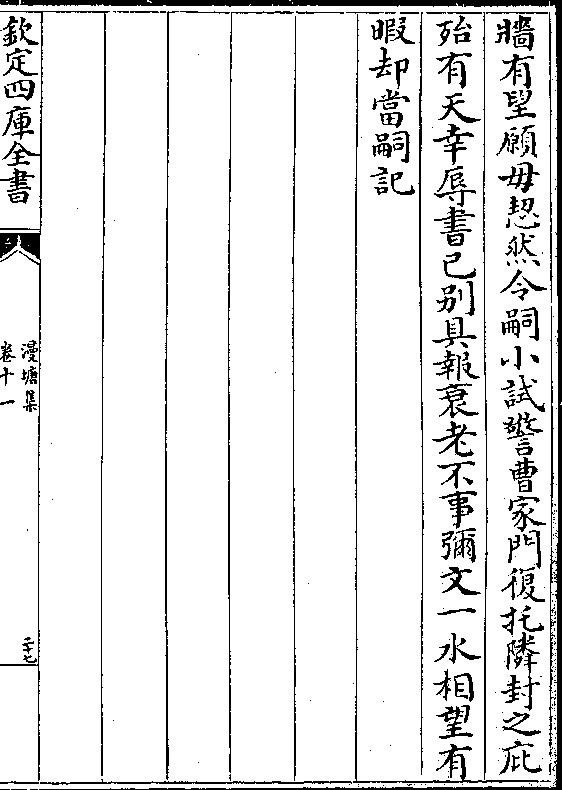 牆有望願毋恝然令嗣小試警曹家門復托隣封之庇
殆有天幸辱書已别具報衰老不事彌文一水相望有
暇却當嗣記
欽定四庫全書
漫塘集
卷十一
二十七